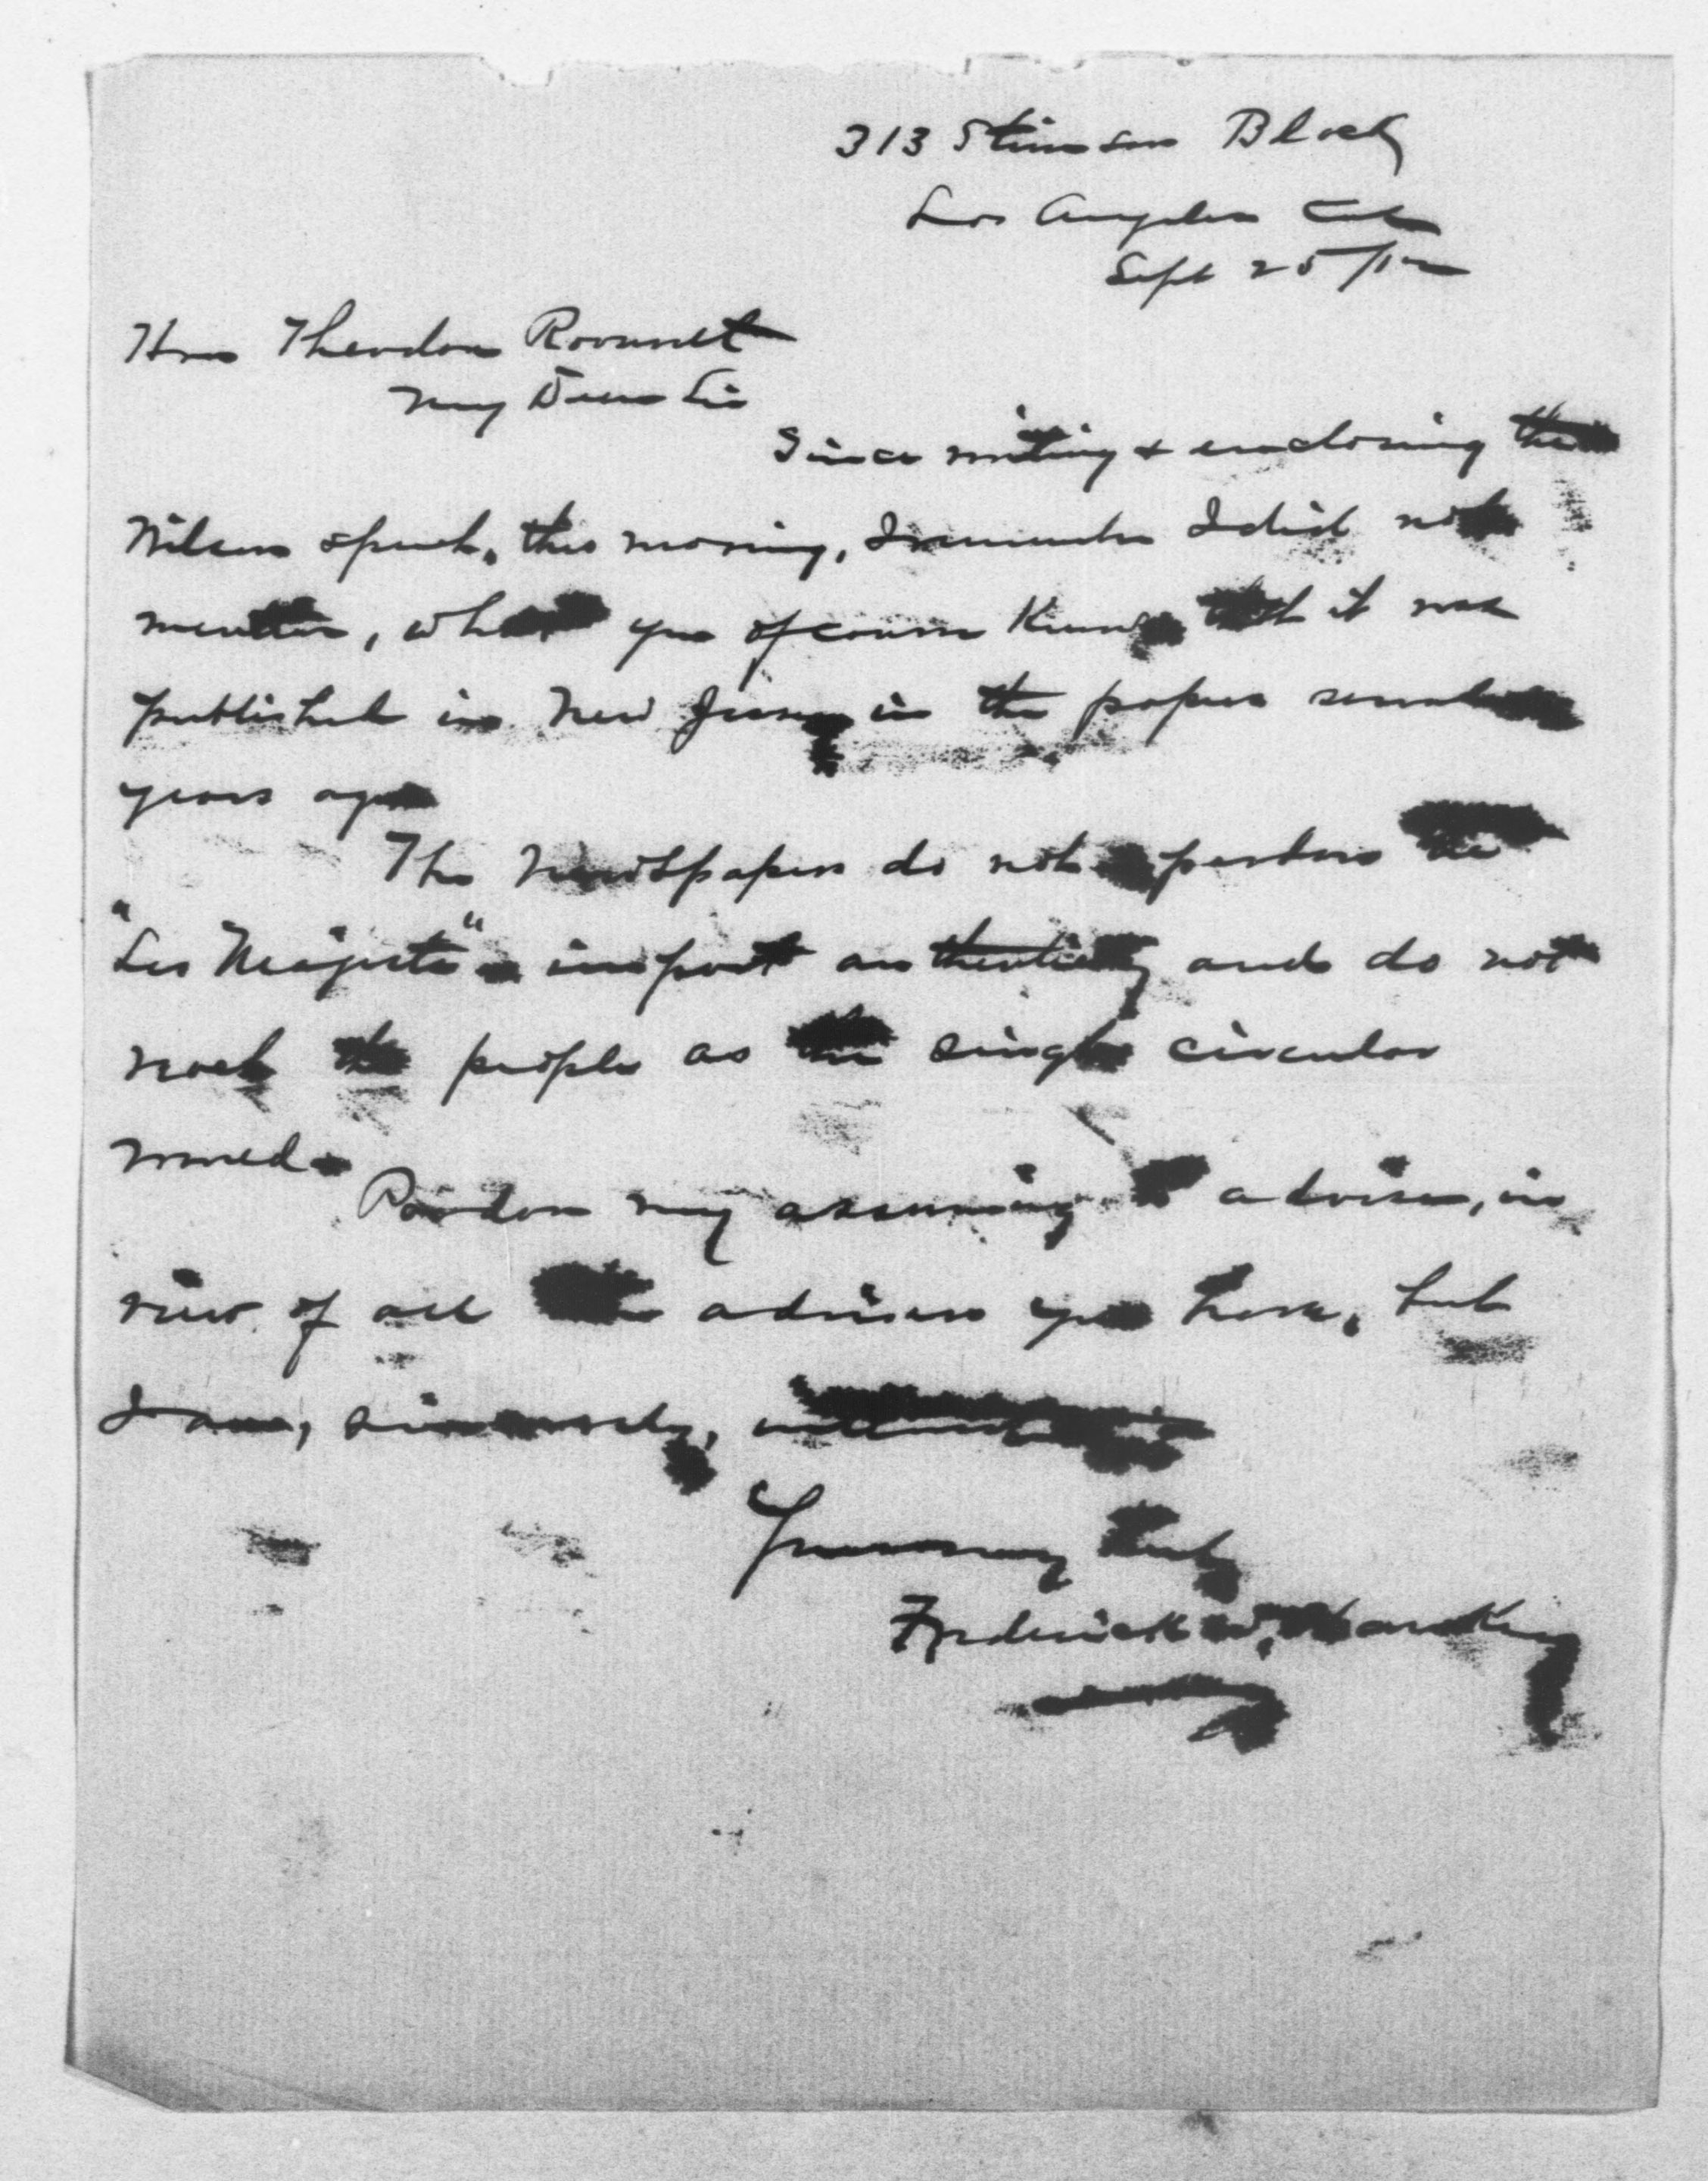 313 Stimson Block
Los Angeles Cal
Sept 25/12
Hon Theodore Roosevelt
My Dear Sir
Since writing & enclosing the
Wilson speech, this morning, I remember I did not
mention, what you of course know that it was
published in New Jersey in the papers several
years ago
The Newspapers do not
"Les Majeste" import authenticity and do not
reach the people as the single circular
would
Pardon my assuming to advise, in
view of all the advisers you have, but
I am, sincerely,
Yours very truly
Frederick W.